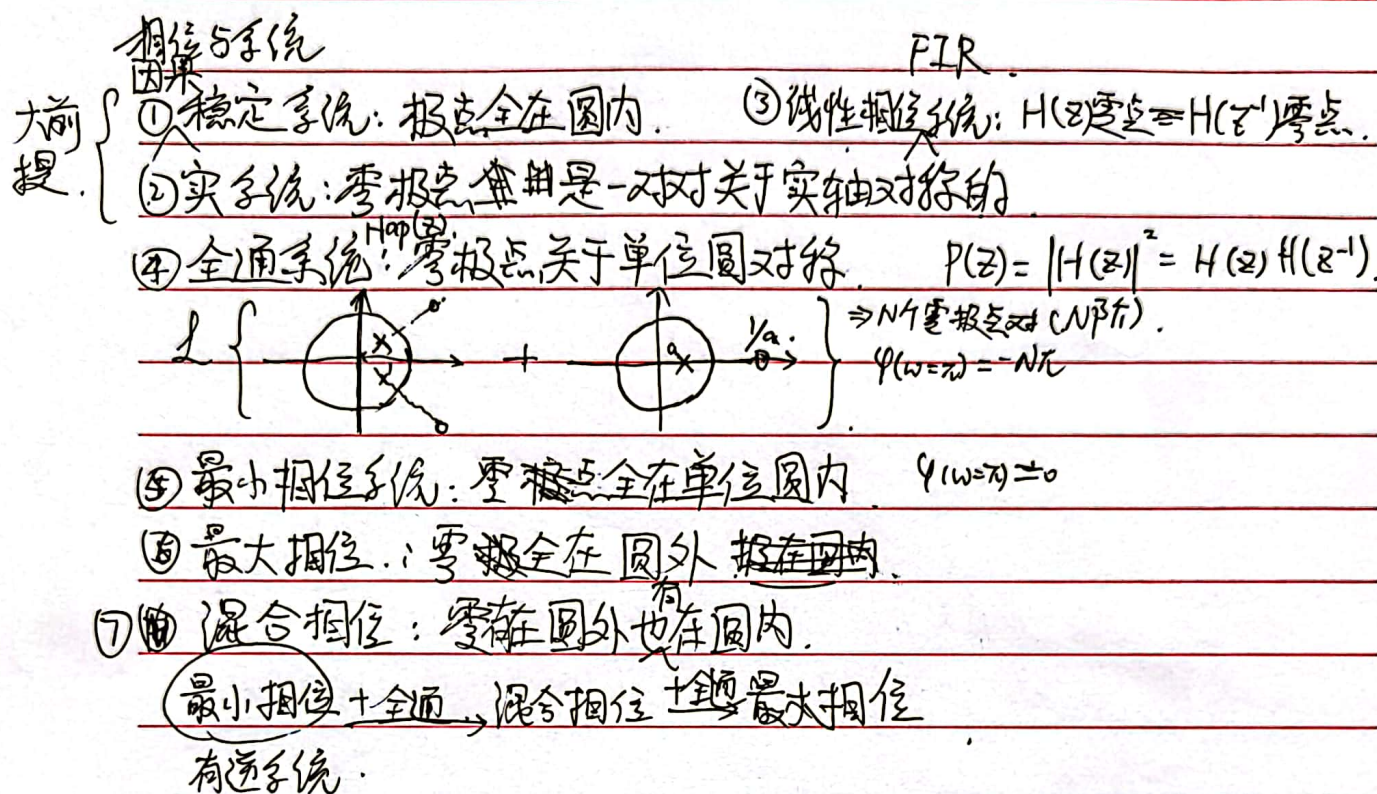 相位与系统
FIR.
因果
大前提.
①稳定系统：极点全在圆内.
③线性相位系统：H(z)零点=H(z⁻¹)零点.
②实系统：零极点是一对对关于实轴对称的.
Hap(z).
④全通系统：零极点关于单位圆对称. P(z)=|H(z)|²=H(z)H(z⁻¹).
+ a 1/a.
⇒N个零极点对(N阶).
φ(ω=π)=-Nπ
⑤最小相位系统：零点全在单位圆内. φ(ω=π)=0
⑥最大相位：零全在圆外
⑦混合相位：零有在圆外也有在圆内.
最小相位 +全通→ 混合相位 +全通→ 最大相位
有逆系统.